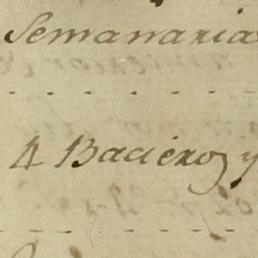 Semanaria
4 Bacieros y